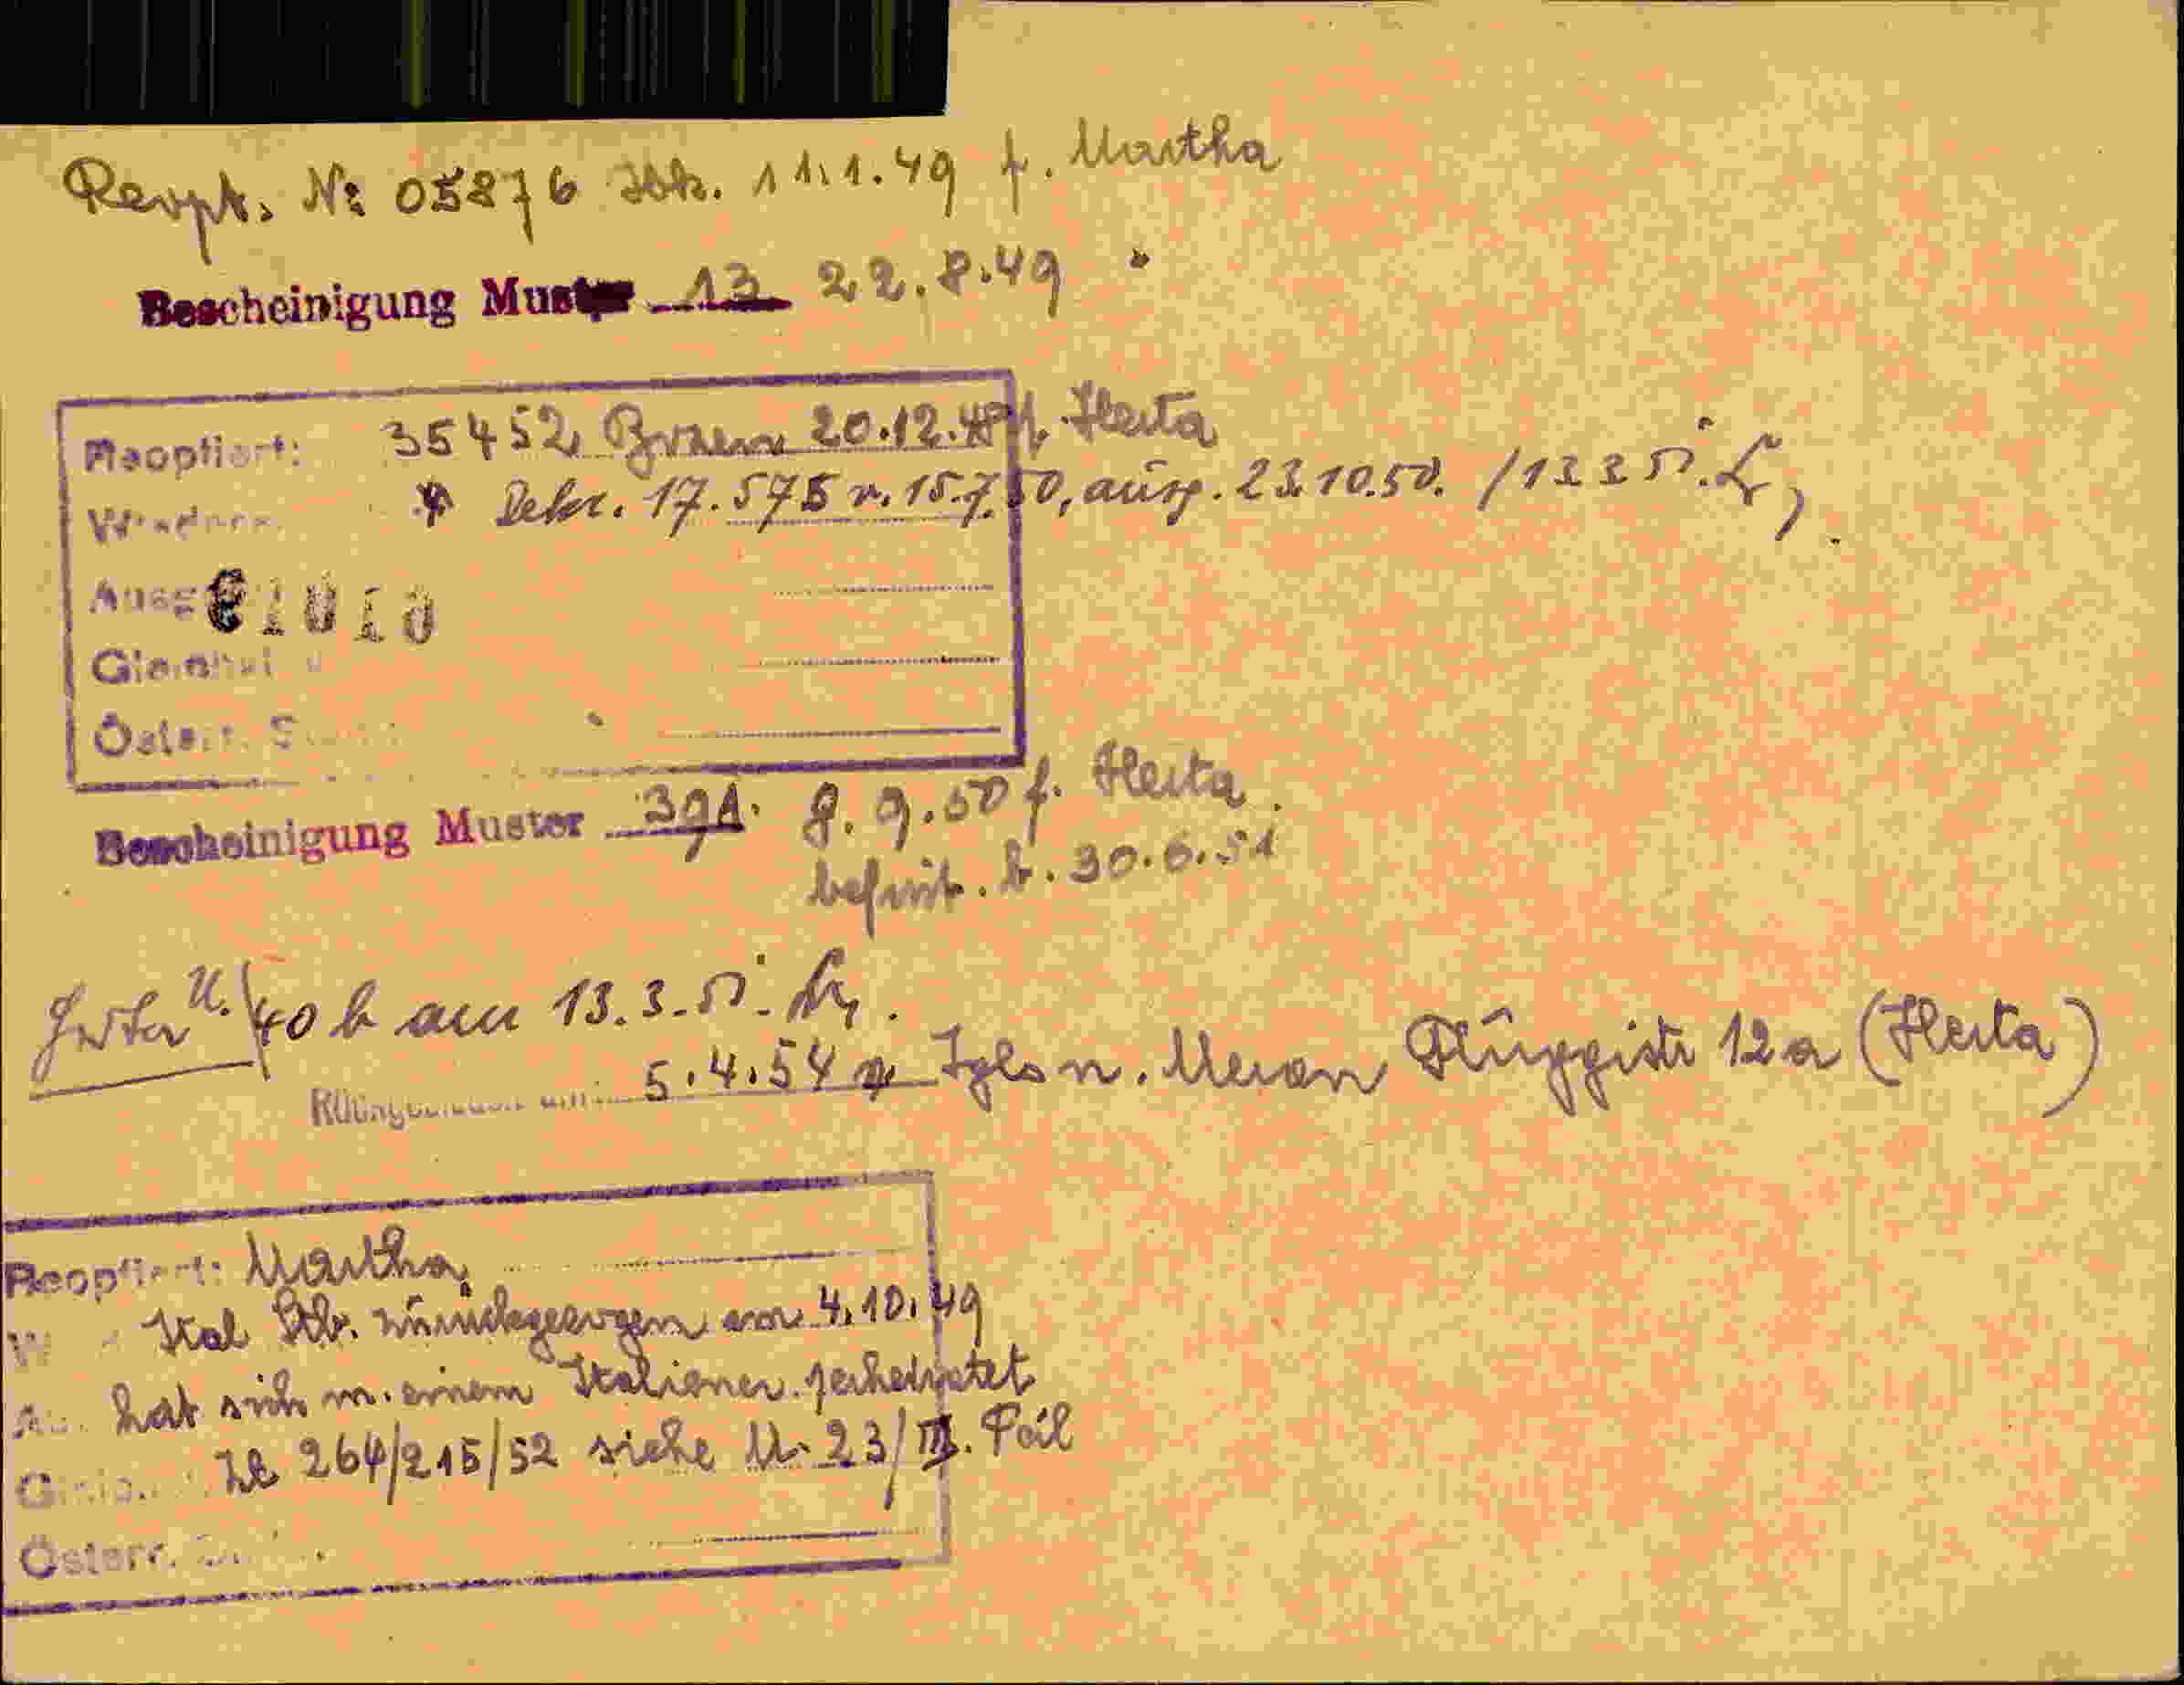 Reopt. No 05876 Ibk. 11.1.49 f. Martha
Bescheinigung Muster 13 22.8.49
Reoptiert: 35452 Bozen 20.12.48 f. Herta
Dekr. 17.575 v. 15.7.50, ausg. 23.10.50. /13 3 51.
Ausg
Österr. S
Bescheinigung Muster 39A. 8.9.50 f. Herta.
befrist. b. 30.6.51
40 b am 13.3.51.
5.4.54 Igls n. Meran 12a (Herta)
Reoptiert: Martha
Ital Stb. zurückgezogen am 4.10.49
hat sich m. einem Italiener verheiratet
Zl 264/215/52 siehe U. 23/III.
Österr.